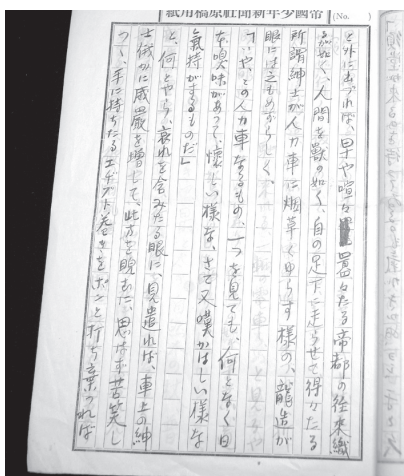 帝國少年新聞社原稿用紙 (No. )
と外に出づれば、早や喧々囂々たる帝都の往来織
るが如く、人間を獣の如く、自の足下に走らせて得々たる
所謂紳士が人力車に烟草くゆらす様の、龍造が
眼には之もめづらしく、
「いやこの人力車なるもの、一つを見ても、何となく日
本臭味があって、懐しい様な、さて又嘆かはしい様な
気持がするものだ」
と、何とやら、哀れを含みたる眼に、見遣れば、車上の紳
士俄かに威厳を増して、此方を睨むだ、思はず苦笑し
つゝ、手に持ちたるエヂプト巻きをポンと打ち棄つれば